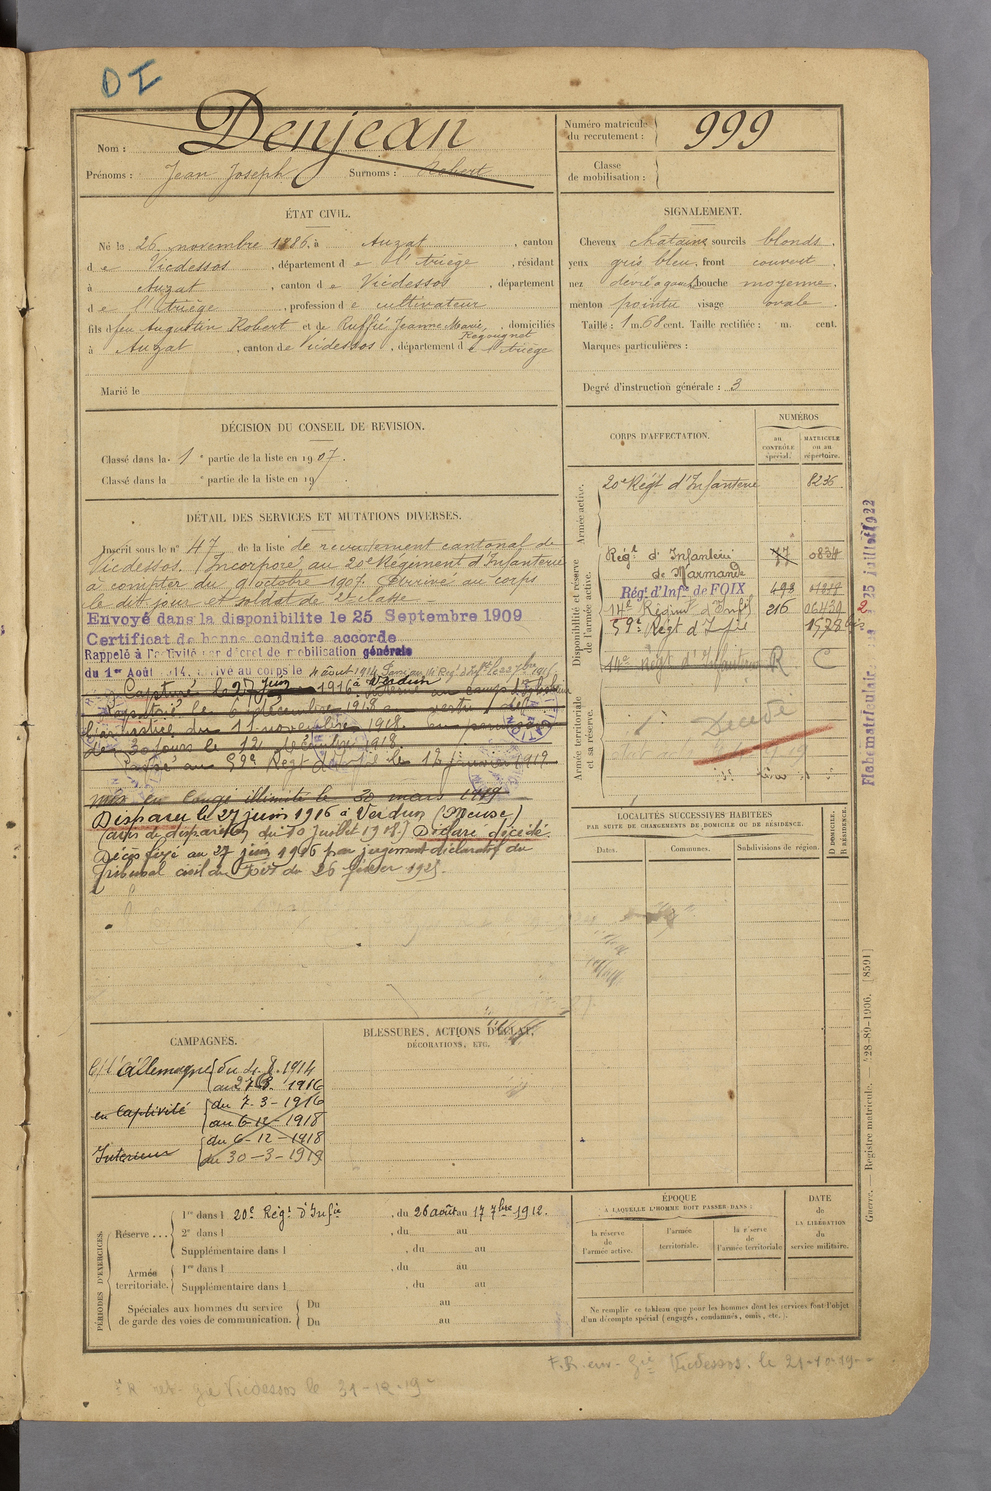 DI
Nom : Denjean
Prénoms : Jean Joseph Surnoms : Robert
Numéro matricule du recrutement : 999
Classe de mobilisation :
ÉTAT CIVIL.
Né le 26 novembre 1886, à Auzat, canton
de Vicdessos, département de l'Ariège, résidant
à Auzat, canton de Vicdessos, département
de l'Ariège, profession de cultivateur
fils de feu Augustin Robert et de Ruffié Jeanne Marie, domiciliés
Rogougnet
à Auzat, canton de Vicdessos, département de l'Ariège
Marié le
SIGNALEMENT.
Cheveux châtains sourcils blonds.
yeux gris bleu. front couvert.
nez bouche moyenne.
menton pointu visage ovale.
Taille : 1 m. 68 cent. Taille rectifiée : m. cent.
Marques particulières :
Degré d'instruction générale : 3
DÉCISION DU CONSEIL DE REVISION.
Classé dans la 1e partie de la liste en 1907.
Classé dans la e partie de la liste en 19
DÉTAIL DES SERVICES ET MUTATIONS DIVERSES.
Inscrit sous le n° 47 de la liste de recrutement cantonal de
Vicdessos. Incorporé au 20e Régiment d'Infanterie
à compter du 9 octobre 1907. Arrivé au corps
le dit jour et soldat de 2e classe
Envoyé dans la disponibilite le 25 Septembre 1909
Certificat de bonne conduite accorde
Rappelé à l'activité par décret de mobilisation générale
du 1er Août 1914. Arrivé au corps le 4 août 1914
Capturé le 27 juin 1916 à Verdun
Rapatrié le 6 décembre 1918 en vertu de
l'armistice du 11 novembre 1918.
de 30 jours le 12 décembre 1918
Passé au 59e Regt d'Infie le 12 janvier 1919
mis en congé illimité le 30 mars 1919
Disparu le 27 juin 1916 à Verdun (Meuse)
(avis de disparition du 10 juillet 1918) Déclaré décédé.
Décès fixé au 27 juin 1916 par jugement déclaratif du
Tribunal civil de Foix du 26 février 1925.
CORPS D'AFFECTATION.
NUMÉROS
au CONTRÔLE spécial.
MATRICULE ou au répertoire.
Armée active.
20e Régt d'Infanterie 8236
Disponibilité et réserve de l'armée active.
Régt d'Infanterie 47 0834
de Marmande
Régt d'Infie de FOIX 493
14e Régiment d'Infie 216
59e Régt d'Infie 1578 bis
14e Régt d'Infanterie R C
Armée territoriale et sa réserve.
Décédé
Fiche matriculaire 25 juillet 1922
LOCALITÉS SUCCESSIVES HABITÉES
PAR SUITE DE CHANGEMENTS DE DOMICILE OU DE RÉSIDENCE.
Dates. Communes. Subdivisions de région. D DOMICILE. R RÉSIDENCE.
CAMPAGNES.
Ctre l'Allemagne du 4. 8. 1914
au 27 6. 1916
en captivité du 7-3-1916
au 6-12-1918
Intérieur du 6-12-1918
au 30-3-1919
BLESSURES, ACTIONS D'ÉCLAT,
DÉCORATIONS, ETC.
PÉRIODES D'EXERCICES.
Réserve ... 1re dans l 20e Régt d'Infie, du 26 août au 17 7bre 1912.
2e dans l , du au
Supplémentaire dans l , du au
Armée territoriale. 1re dans l , du au
Supplémentaire dans l , du au
Spéciales aux hommes du service de garde des voies de communication. Du au
Du au
ÉPOQUE
A LAQUELLE L'HOMME DOIT PASSER DANS :
la réserve de l'armée active.
l'armée territoriale.
la réserve de l'armée territoriale
DATE de LA LIBÉRATION du service militaire.
Ne remplir ce tableau que pour les hommes dont les services font l'objet
d'un décompte spécial (engagés, condamnés, omis, etc.).
Guerre. — Registre matricule. — 28-89-1906. [8591]
Vicdessos. le 21-10-19
Vicdessos le 31-12-19